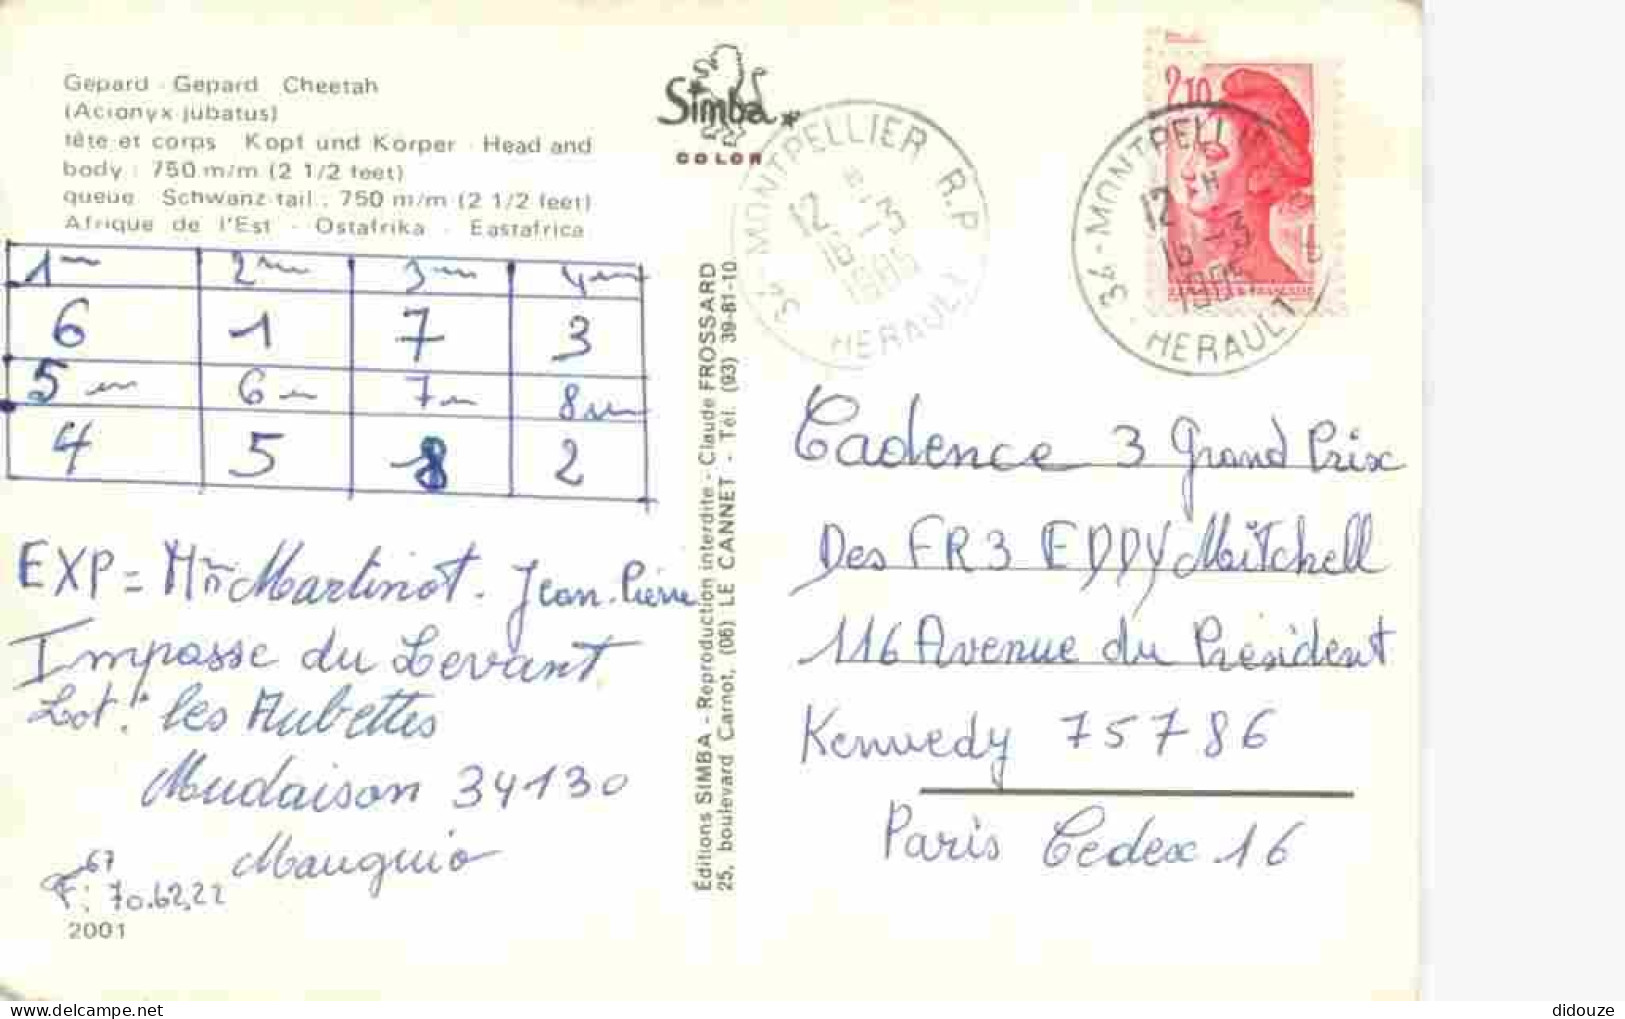 Gepard - Gepard Cheetah
(Acionyx jubatus)
tête et corps Kopf und Korper - Head and
body : 750 m/m (2 1/2 feet)
queue Schwanz-tail : 750 m/m (2 1/2 feet)
Afrique de l'Est - Ostafrika - Eastafrica
Simba
COLOR
34 - MONTPELLIER R.P.
12 H
16 - 3
1985
HERAULT
2,10
34 - MONTPELLIER
12 H
16 - 3
1985
HERAULT
1em 2em 3em 4em
6 1 7 3
5em 6em 7em 8em
4 5 8 2
EXP = Mr Martinot. Jean-Pierre
Impasse du Levant
Lot: les Aubettes
Mudaison 34130
Mauguio
67
70.62.22
2001
Éditions SIMBA - Reproduction interdite - Claude FROSSARD
25, boulevard Carnot, (06) LE CANNET - Tél. (93) 39-81-10
Cadence 3 Grand Prix
Des FR3 EDDY Mitchell
116 Avenue du Président
Kennedy 75786
Paris Cedex 16
didouze